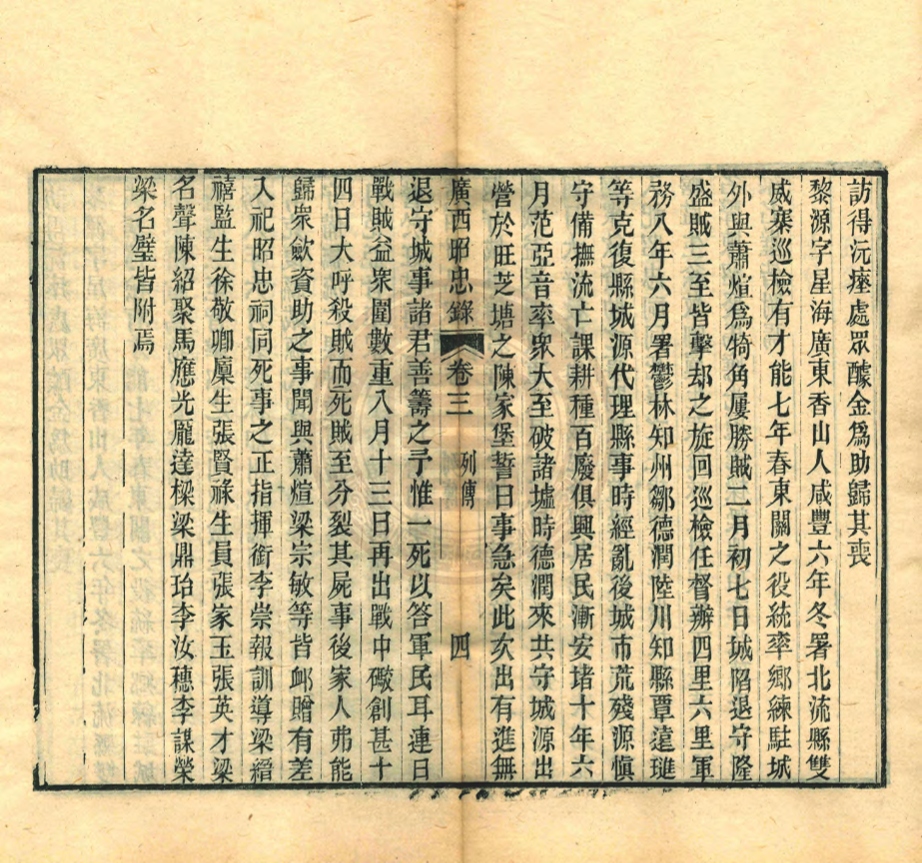 訪得沅瘞處眾醵金爲助歸其喪
黎源字星海廣東香山人咸豐六年冬署北流縣雙
威寨巡檢有才能七年春東關之役統率鄉練駐城
外與蕭煊爲犄角屢勝賊二月初七日城陷退守隆
盛賊三至皆擊却之旋回巡檢任督辦四里六里軍
務八年六月署鬱林知州鄒德潤陸川知縣覃遠璡
等克復縣城源代理縣事時經亂後城市荒殘源愼
守備撫流亡課耕種百廢俱興居民漸安堵十年六
月范亞音率眾大至破諸墟時德潤來共守城源出
營於旺芝塘之陳家堡誓曰事急矣此次出有進無
廣西昭忠錄 卷三 列傳 四
退守城事諸君善籌之予惟一死以答軍民耳連日
戰賊益眾圍數重八月十三日再出戰中礮創甚十
四日大呼殺賊而死賊至分裂其屍事後家人弗能
歸眾斂資助之事聞與蕭煊梁宗敏等皆卹贈有差
入祀昭忠祠同死事之正指揮銜李崇報訓導梁縉
禧監生徐敬卿廩生張賢祿生員張家玉張英才梁
名聲陳紹聚馬應光龐達樑梁鼎珆李汝穗李謀榮
梁名璧皆附焉